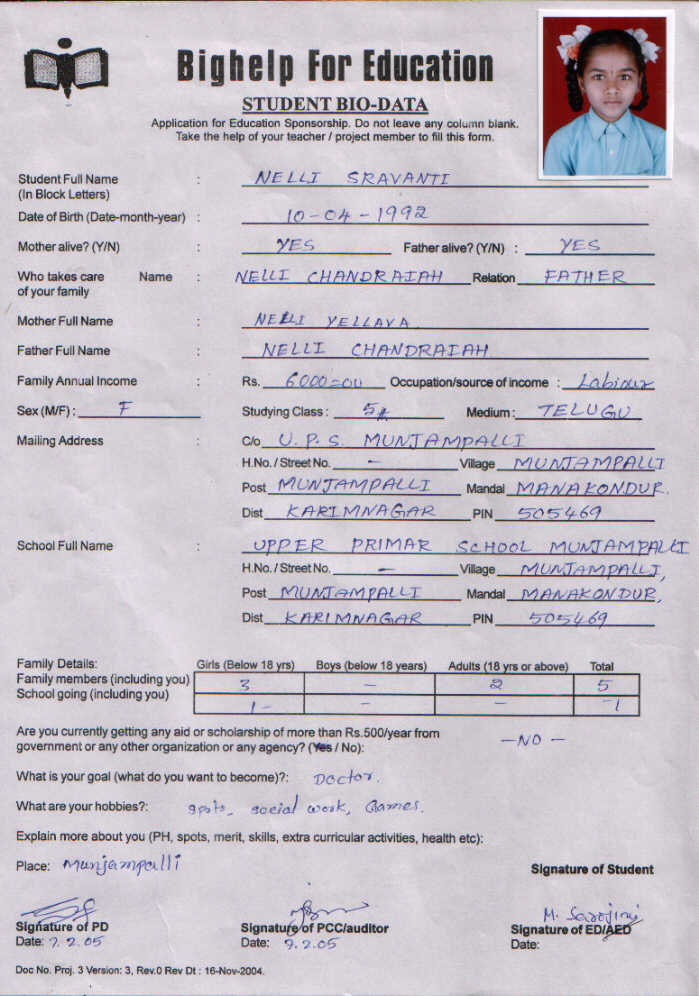 Bighelp For Education
STUDENT BIO-DATA
Application for Education Sponsorship. Do not leave any column blank.
Take the help of your teacher / project member to fill this form.
Student Full Name : NELLI SRAVANTI
(In Block Letters)
Date of Birth (Date-month-year) : 10-04-1992
Mother alive? (Y/N) : YES Father alive? (Y/N) : YES
Who takes care Name : NELLI CHANDRAIAH Relation FATHER
of your family
Mother Full Name : NELLI YELLAVA
Father Full Name : NELLI CHANDRAIAH
Family Annual Income : Rs. 6000=00 Occupation/source of income : Labiour
Sex (M/F) : F Studying Class : 5 Medium : TELUGU
Mailing Address : C/o U.P.S. MUNJAMPALLI
H.No. / Street No. - Village MUNJAMPALLI
Post MUNJAMPALLI Mandal MANAKONDUR.
Dist KARIMNAGAR PIN 505469
School Full Name : UPPER PRIMAR SCHOOL MUNJAMPALLI
H.No. / Street No. - Village MUNJAMPALLI,
Post MUNJAMPALLI Mandal MANAKONDUR,
Dist KARIMNAGAR PIN 505469
Family Details: Girls (Below 18 yrs) Boys (below 18 years) Adults (18 yrs or above) Total
Family members (including you) 3 - 2 5
School going (including you) 1 - - - -1
Are you currently getting any aid or scholarship of more than Rs.500/year from
government or any other organization or any agency? (Yes / No): -NO-
What is your goal (what do you want to become)?: Doctor.
What are your hobbies?: spots, social work, Games.
Explain more about you (PH, spots, merit, skills, extra curricular activities, health etc):
Place: Munjampalli
Signature of Student
M. Sarojini
Signature of PD Signature of PCC/auditor Signature of ED/AED
Date: 7.2.05 Date: 9.2.05 Date:
Doc No. Proj. 3 Version: 3, Rev.0 Rev Dt : 16-Nov-2004.